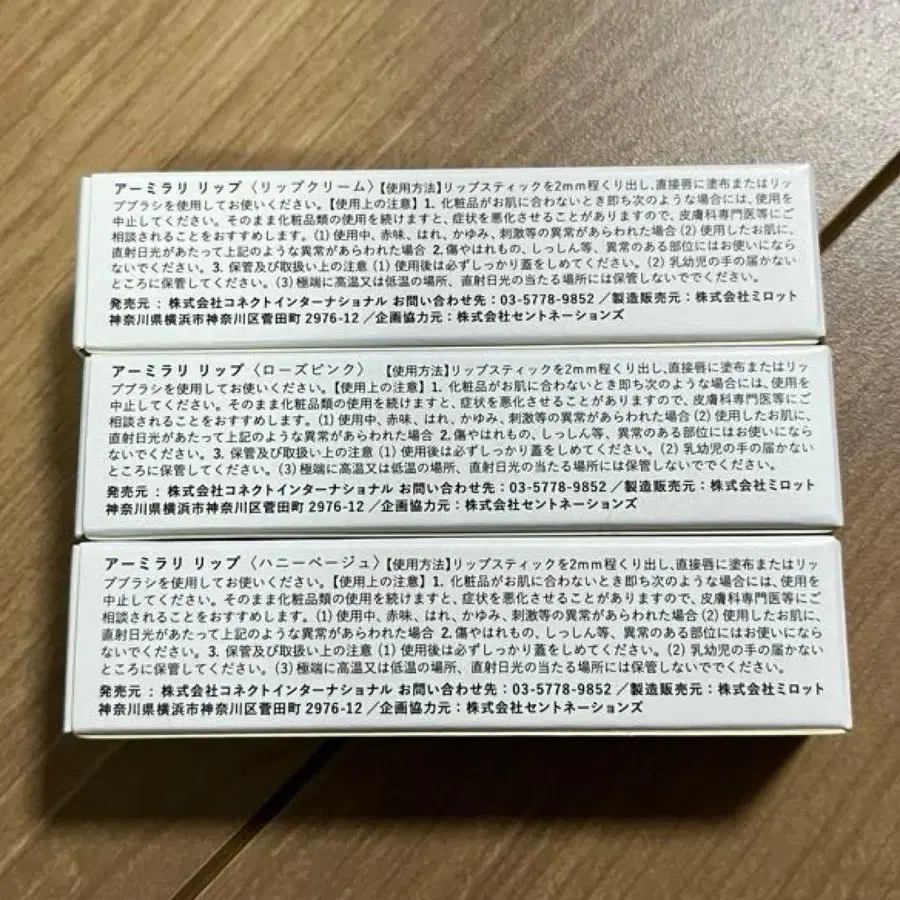 アーミラリ リップ〈リップクリーム〉【使用方法】リップスティックを2mm程くり出し、直接唇に塗布またはリッ
プブラシを使用してお使いください。【使用上の注意】1. 化粧品がお肌に合わないとき即ち次のような場合には、使用を
中止してください。そのまま化粧品類の使用を続けますと、症状を悪化させることがありますので、皮膚科専門医等にご
相談されることをおすすめします。(1) 使用中、赤味、はれ、かゆみ、刺激等の異常があらわれた場合 (2) 使用したお肌に、
直射日光があたって上記のような異常があらわれた場合 2.傷やはれもの、しっしん等、異常のある部位にはお使いになら
ないでください。3. 保管及び取扱い上の注意 (1) 使用後は必ずしっかり蓋をしめてください。(2) 乳幼児の手の届かない
ところに保管してください。(3)極端に高温又は低温の場所、直射日光の当たる場所には保管しないでください。
発売元 : 株式会社コネクトインターナショナル お問い合わせ先 : 03-5778-9852 /製造販売元 : 株式会社ミロット
神奈川県横浜市神奈川区菅田町 2976-12 /企画協力元 : 株式会社セントネーションズ
アーミラリ リップ〈ローズピンク〉 【使用方法】リップスティックを2mm程くり出し、直接唇に塗布またはリッ
プブラシを使用してお使いください。【使用上の注意】1. 化粧品がお肌に合わないとき即ち次のような場合には、使用を
中止してください。そのまま化粧品類の使用を続けますと、症状を悪化させることがありますので、皮膚科専門医等にご
相談されることをおすすめします。(1) 使用中、赤味、はれ、かゆみ、刺激等の異常があらわれた場合 (2) 使用したお肌に、
直射日光があたって上記のような異常があらわれた場合 2.傷やはれもの、しっしん等、異常のある部位にはお使いになら
ないでください。3. 保管及び取扱い上の注意 (1) 使用後は必ずしっかり蓋をしめてください。(2) 乳幼児の手の届かない
ところに保管してください。(3)極端に高温又は低温の場所、直射日光の当たる場所には保管しないででください。
発売元 : 株式会社コネクトインターナショナル お問い合わせ先 : 03-5778-9852 /製造販売元 : 株式会社ミロット
神奈川県横浜市神奈川区菅田町 2976-12 /企画協力元 : 株式会社セントネーションズ
アーミラリ リップ〈ハニーベージュ〉【使用方法】リップスティックを2mm程くり出し、直接唇に塗布またはリッ
プブラシを使用してお使いください。【使用上の注意】1. 化粧品がお肌に合わないとき即ち次のような場合には、使用を
中止してください。そのまま化粧品類の使用を続けますと、症状を悪化させることがありますので、皮膚科専門医等にご
相談されることをおすすめします。(1) 使用中、赤味、はれ、かゆみ、刺激等の異常があらわれた場合 (2) 使用したお肌に、
直射日光があたって上記のような異常があらわれた場合 2.傷やはれもの、しっしん等、異常のある部位にはお使いになら
ないでください。3. 保管及び取扱い上の注意 (1) 使用後は必ずしっかり蓋をしめてください。(2) 乳幼児の手の届かない
ところに保管してください。(3)極端に高温又は低温の場所、直射日光の当たる場所には保管しないででください。
発売元 : 株式会社コネクトインターナショナル お問い合わせ先 : 03-5778-9852 /製造販売元 : 株式会社ミロット
神奈川県横浜市神奈川区菅田町 2976-12 /企画協力元 : 株式会社セントネーションズ